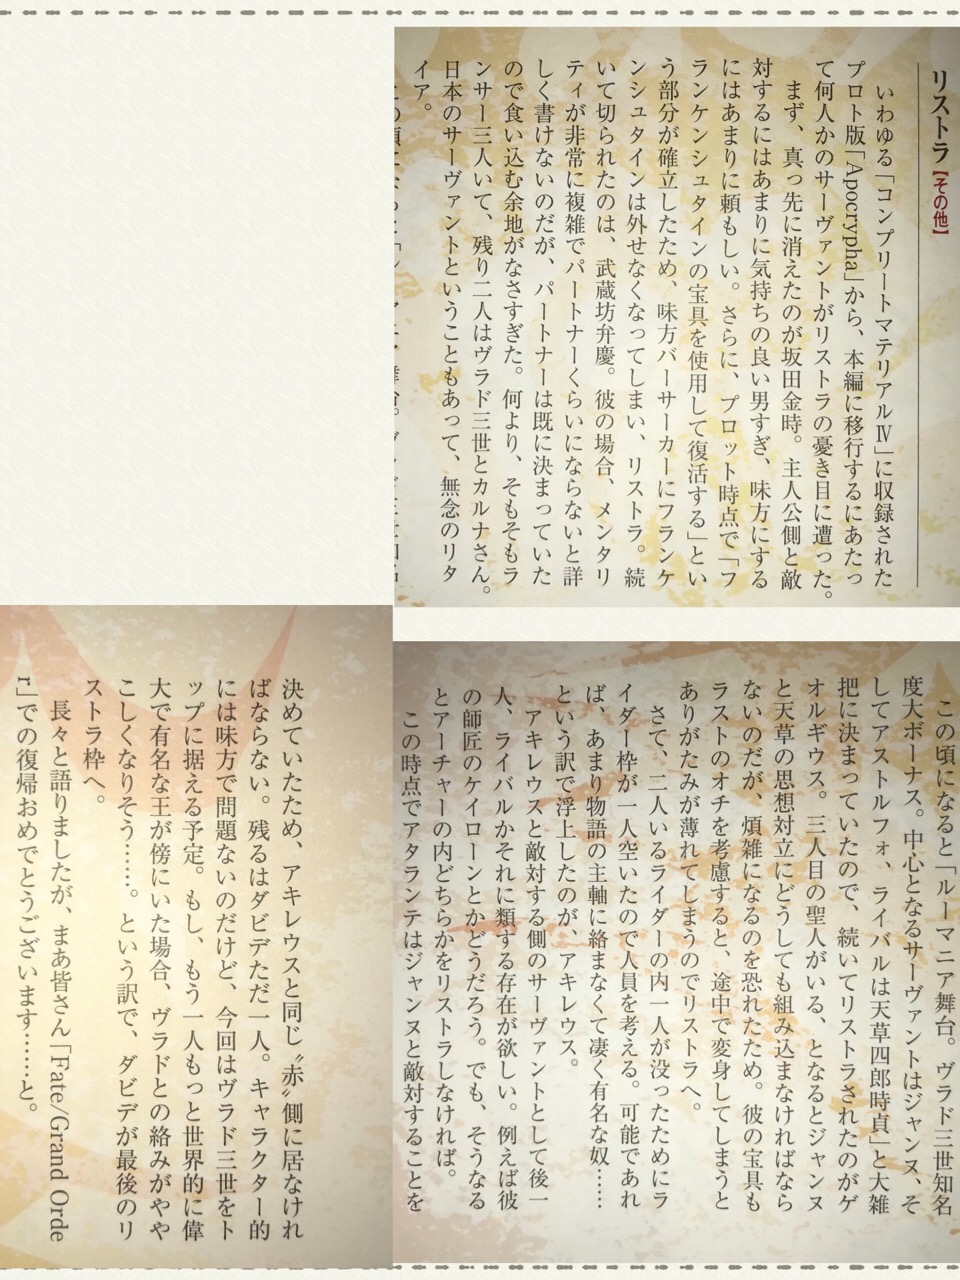 リストラ【その他】
いわゆる「コンプリートマテリアルⅣ」に収録された
プロト版「Apocrypha」から、本編に移行するにあたっ
て何人かのサーヴァントがリストラの憂き目に遭った。
まず、真っ先に消えたのが坂田金時。主人公側と敵
対するにはあまりに気持ちの良い男すぎ、味方にする
にはあまりに頼もしい。さらに、プロット時点で「フ
ランケンシュタインの宝具を使用して復活する」とい
う部分が確立したため、味方バーサーカーにフランケ
ンシュタインは外せなくなってしまい、リストラ。続
いて切られたのは、武蔵坊弁慶。彼の場合、メンタリ
ティが非常に複雑でパートナーくらいにならないと詳
しく書けないのだが、パートナーは既に決まっていた
ので食い込む余地がなさすぎた。何より、そもそもラ
ンサー三人いて、残り二人はヴラド三世とカルナさん。
日本のサーヴァントということもあって、無念のリタ
イア。
この頃になると「ルーマニア舞台。ヴラド三世知名
度大ボーナス。中心となるサーヴァントはジャンヌ、そ
してアストルフォ、ライバルは天草四郎時貞」と大雑
把に決まっていたので、続いてリストラされたのがゲ
オルギウス。三人目の聖人がいる、となるとジャンヌ
と天草の思想対立にどうしても組み込まなければなら
ないのだが、煩雑になるのを恐れたため。彼の宝具も
ラストのオチを考慮すると、途中で変身してしまうと
ありがたみが薄れてしまうのでリストラへ。
さて、二人いるライダーの内一人が没ったためにラ
イダー枠が一人空いたので人員を考える。可能であれ
ば、あまり物語の主軸に絡まなくて凄く有名な奴……
という訳で浮上したのが、アキレウス。
アキレウスと敵対する側のサーヴァントとして後一
人、ライバルかそれに類する存在が欲しい。例えば彼
の師匠のケイローンとかどうだろう。でも、そうなる
とアーチャーの内どちらかをリストラしなければ。
この時点でアタランテはジャンヌと敵対することを
決めていたため、アキレウスと同じ〝赤〟側に居なけれ
ばならない。残るはダビデただ一人。キャラクター的
には味方で問題ないのだけど、今回はヴラド三世をト
ップに据える予定。もし、もう一人もっと世界的に偉
大で有名な王が傍にいた場合、ヴラドとの絡みがやや
こしくなりそう……。という訳で、ダビデが最後のリ
ストラ枠へ。
長々と語りましたが、まあ皆さん「Fate/Grand Orde
r」での復帰おめでとうございます……と。